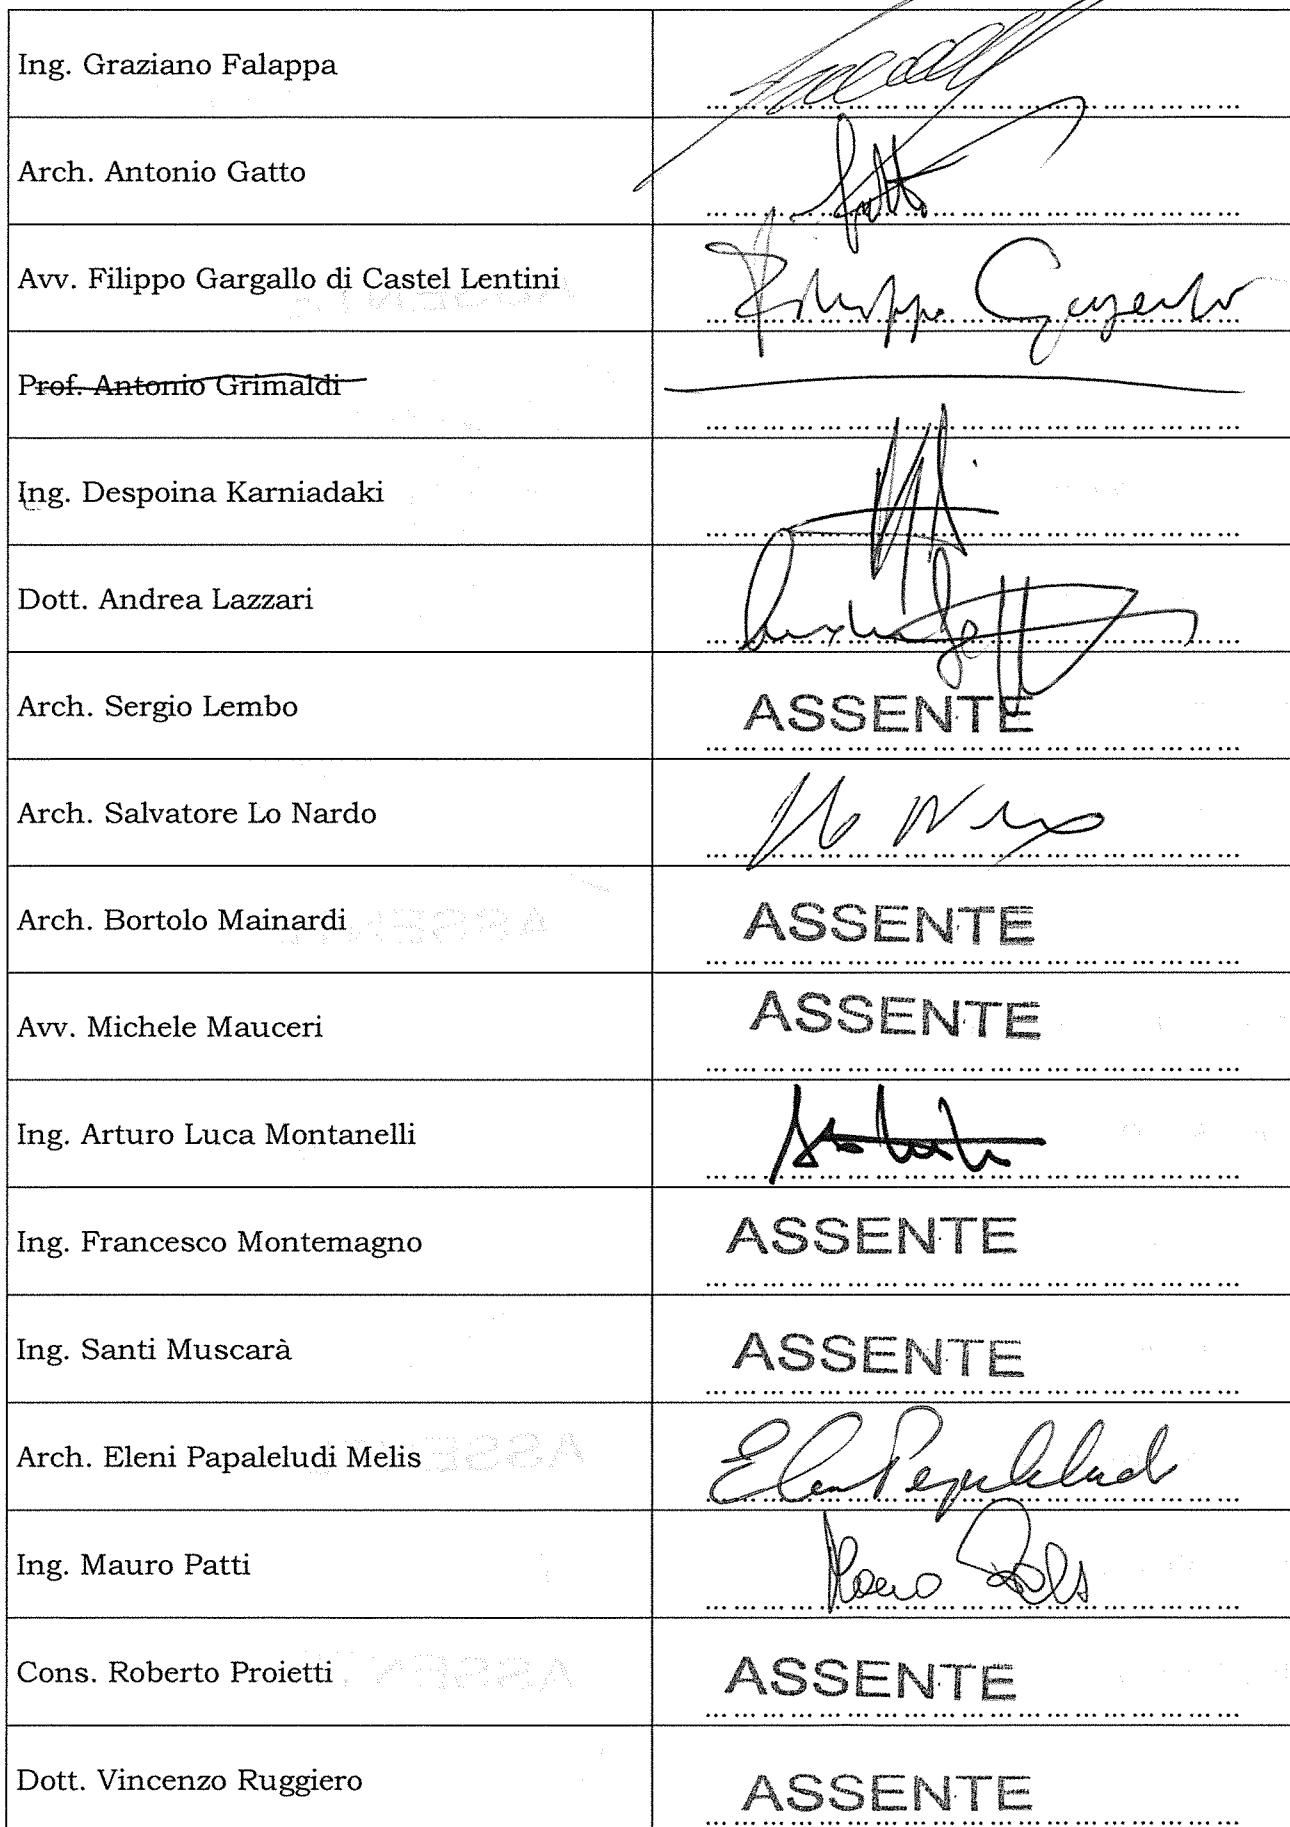 Ing. Graziano Falappa
Arch. Antonio Gatto
Avv. Filippo Gargallo di Castel Lentini
Filippo Gargallo
Prof. Antonio Grimaldi
Ing. Despoina Karniadaki
Dott. Andrea Lazzari
Arch. Sergio Lembo
ASSENTE
Arch. Salvatore Lo Nardo
Arch. Bortolo Mainardi
ASSENTE
Avv. Michele Mauceri
ASSENTE
Ing. Arturo Luca Montanelli
Ing. Francesco Montemagno
ASSENTE
Ing. Santi Muscarà
ASSENTE
Arch. Eleni Papaleludi Melis
Ing. Mauro Patti
Cons. Roberto Proietti
ASSENTE
Dott. Vincenzo Ruggiero
ASSENTE